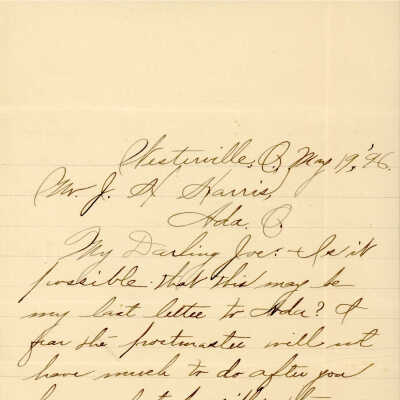 Westerville, O. May 19, '96.
Mr. J. A. Harris,
Ada. O.
My Darling Joe:- Is it
possible that this may be
my last letter to Ada? I
fear the postmaster will not
have much to do after you